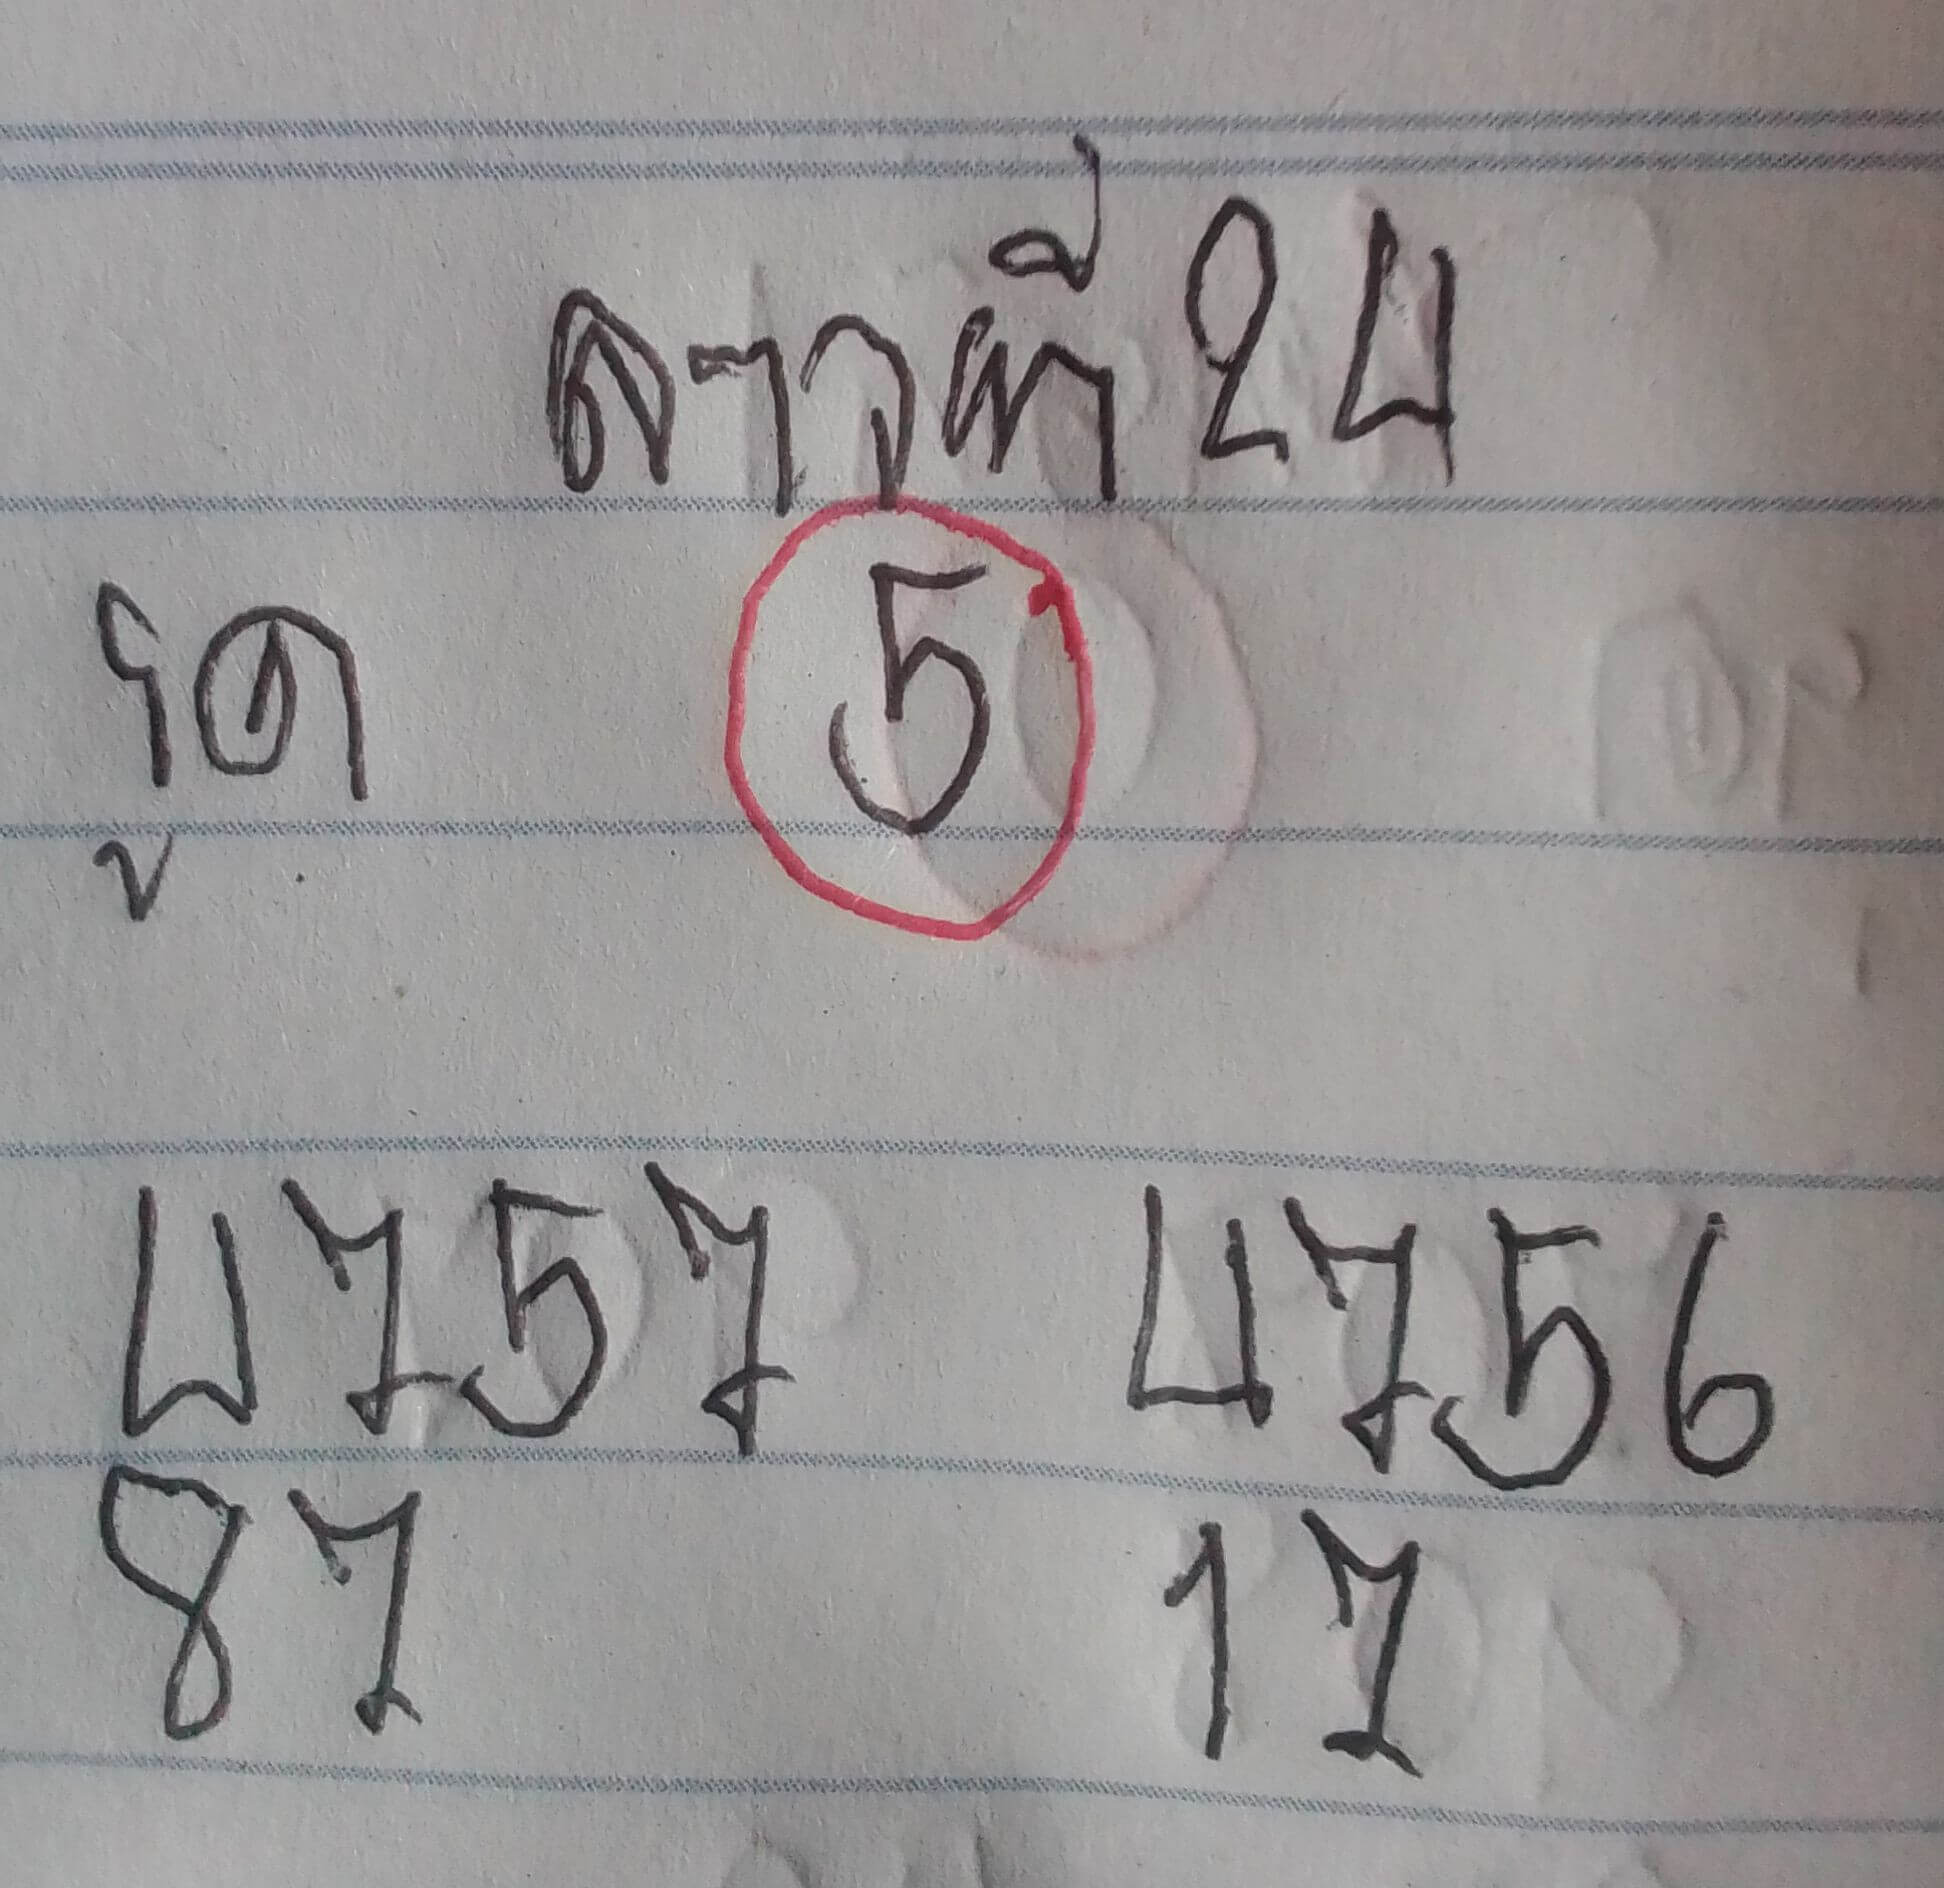 ลาวที่ 24
รูด 5
4757 4756
87 17